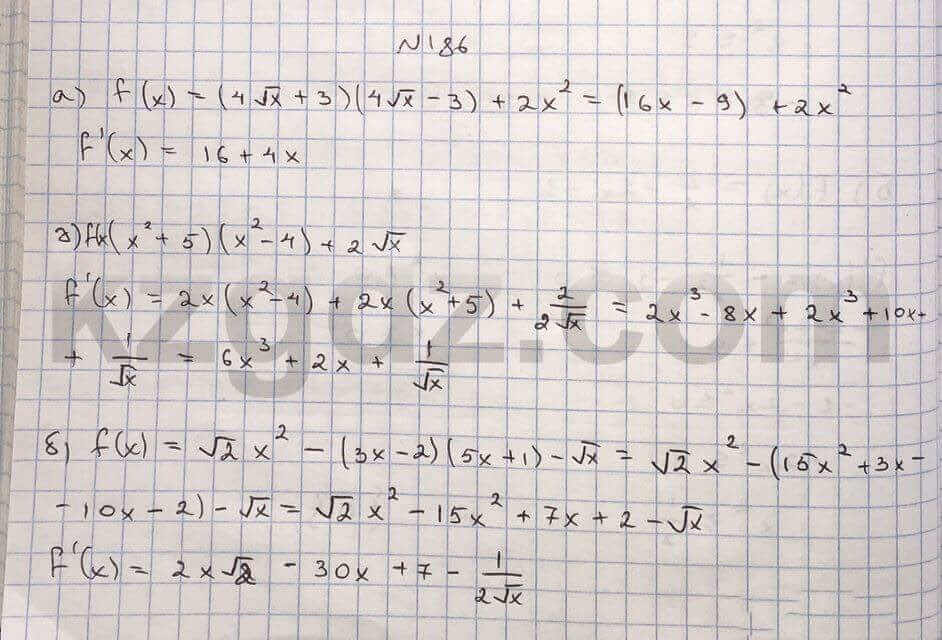 N186
а) f(x) = (4√x + 3)(4√x - 3) + 2x² = (16x - 9) + 2x²
f'(x) = 16 + 4x
г) f(x (x² + 5)(x² - 4) + 2√x
f'(x) = 2x(x² - 4) + 2x(x² + 5) + 2/(2√x) = 2x³ - 8x + 2x³ + 10x +
+ 1/√x = 6x³ + 2x + 1/√x
б) f(x) = √2 x² - (3x - 2)(5x + 1) - √x = √2 x² - (15x² + 3x -
- 10x - 2) - √x = √2 x² - 15x² + 7x + 2 - √x
f'(x) = 2x√2 - 30x + 7 - 1/(2√x)
kzgdz.com